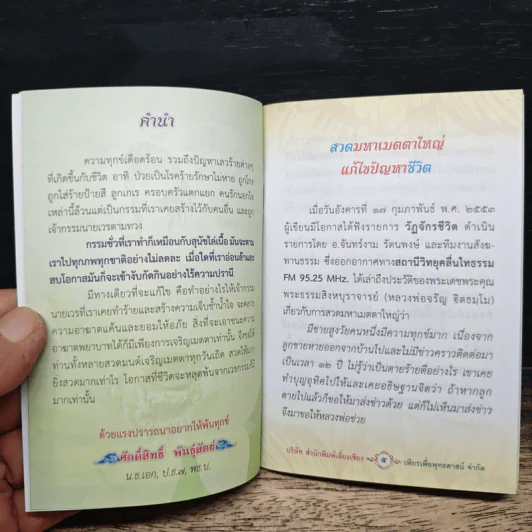 คำนำ
ความทุกข์เดือดร้อน รวมถึงปัญหาเลวร้ายต่างๆ
ที่เกิดขึ้นกับชีวิต อาทิ ป่วยเป็นโรคร้ายรักษาไม่หาย ถูกโกง
ถูกใส่ร้ายป้ายสี ลูกเกเร ครอบครัวแตกแยก คนรักนอกใจ
เหล่านี้ล้วนแต่เป็นกรรมที่เราเคยสร้างไว้กับคนอื่น และถูก
เจ้ากรรมนายเวรตามทวง
กรรมชั่วที่เราทำก็เหมือนกับสุนัขไล่เนื้อ มันจะตาม
เราไปทุกภพทุกชาติอย่างไม่ลดละ เมื่อใดที่เราอ่อนล้าและ
สบโอกาสมันก็จะเข้าขังกัดกินอย่างไร้ความปรานี
มีทางเดียวที่จะแก้ไข คือทำอย่างไรให้เจ้ากรรม
นายเวรที่เราเคยทำร้ายและสร้างความเจ็บช้ำน้ำใจ จะคลาย
ความอาฆาตแค้นและยอมให้อภัย สิ่งที่จะเอาชนะความ
อาฆาตพยาบาทได้ก็มีเพียงการเจริญเมตตาเท่านั้น จึงขอให้
ท่านทั้งหลายสวดมนต์เจริญเมตตาทุกวันเถิด สวดให้มาก
ยิ่งสวดมากเท่าไร โอกาสที่ชีวิตจะหลุดพ้นจากเวรกรรมก็มี
มากเท่านั้น
ด้วยแรงปรารถนาอยากให้พ้นทุกข์
ศักดิ์สิทธิ์ พันธุ์สัตย์
น.ธ.เอก, ป.ธ.๗, พธ.บ.
สวดมหาเมตตาใหญ่
แก้ไขปัญหาชีวิต
เมื่อวันอังคารที่ ๑๗ กุมภาพันธ์ พ.ศ. ๒๕๕๓
ผู้เขียนมีโอกาสได้ฟังรายการ วัฏจักรชีวิต ดำเนิน
รายการโดย อ.จันทร์งาม รัตนพงษ์ และทีมงานสังฆ-
ทานธรรม ซึ่งออกอากาศทางสถานีวิทยุคลื่นไทธรรม
FM 95.25 MHz. ได้เล่าถึงประวัติของพระเดชพระคุณ
พระธรรมสิงหบุราจารย์ (หลวงพ่อจรัญ ฐิตธมฺโม)
เกี่ยวกับการสวดมหาเมตตาใหญ่ว่า
มีชายสูงวัยคนหนึ่งมีความทุกข์มาก เนื่องจาก
ลูกชายหายออกจากบ้านไปและไม่มีข่าวคราวติดต่อมา
เป็นเวลา ๑๒ ปี ไม่รู้ว่าเป็นตายร้ายดีอย่างไร เขาเคย
ทำบุญอุทิศไปให้และเคยอธิษฐานจิตว่า ถ้าหากลูก
ตายไปแล้วก็ขอให้มาส่งข่าวด้วย แต่ก็ไม่เห็นมาส่งข่าว
จึงมาขอให้หลวงพ่อช่วย
บริษัท สำนักพิมพ์เลี่ยงเชียง ๕ เพียรเพื่อพุทธศาสน์ จำกัด